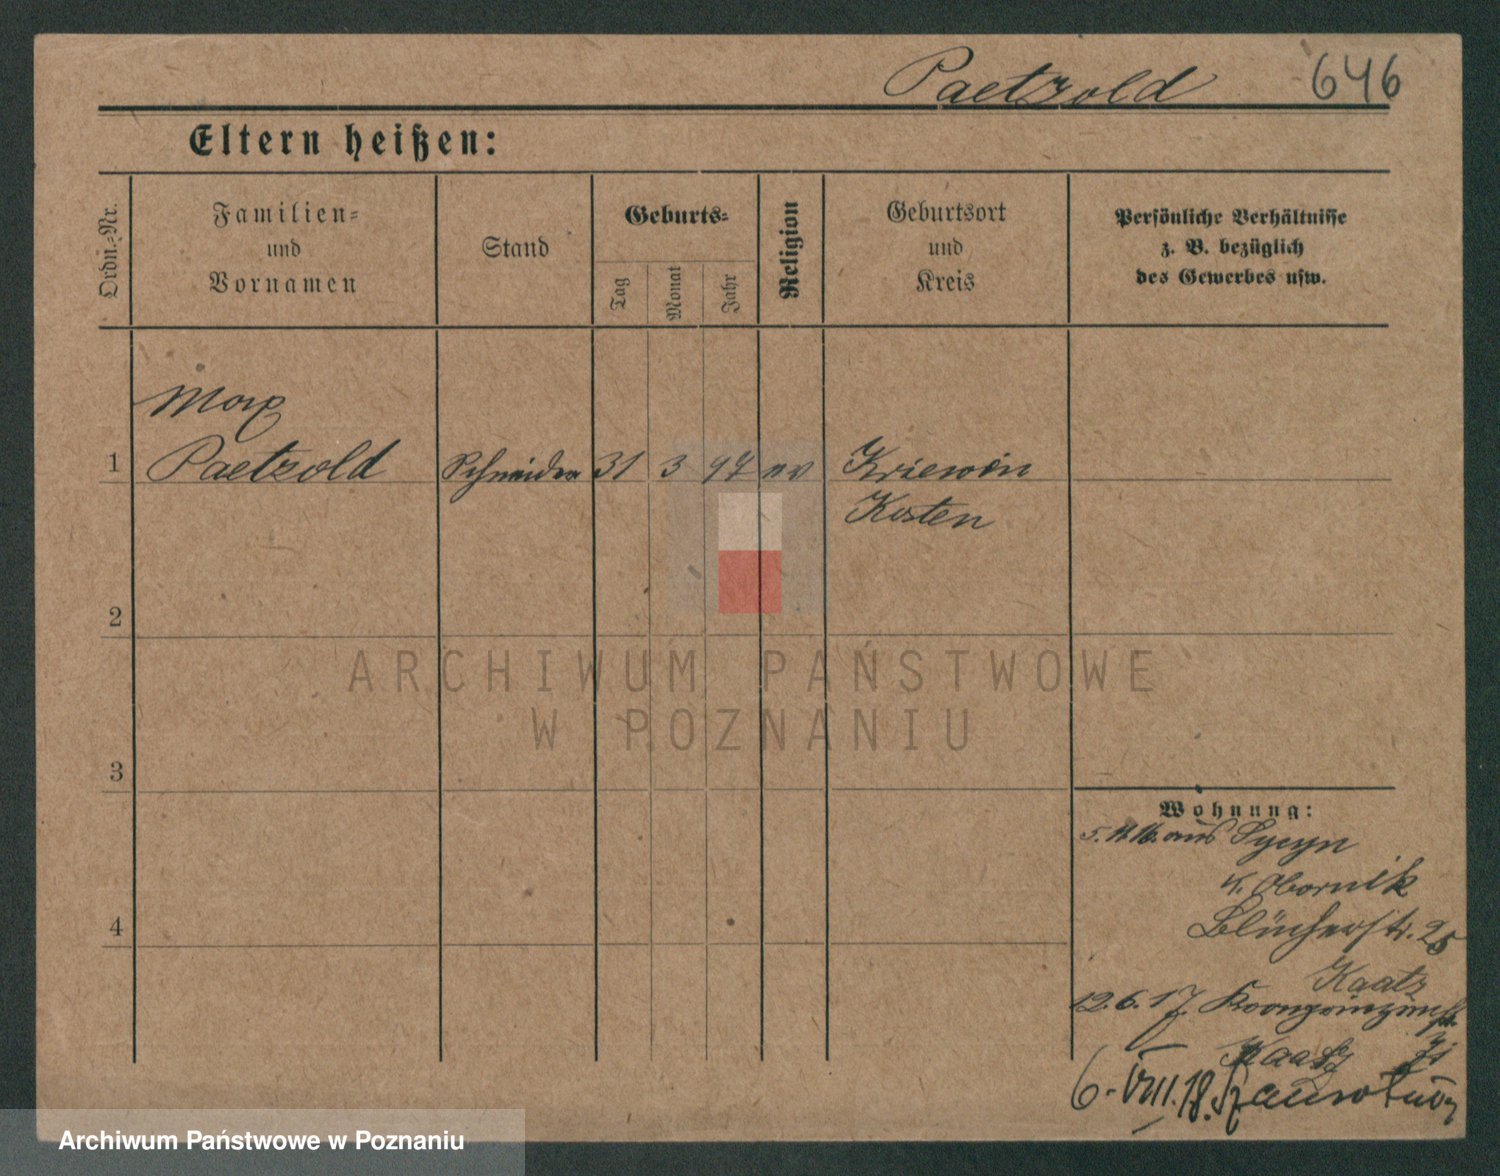 Paetzold 646
Eltern heißen:
Ordn.-Nr.
Familien-
und
Vornamen
Stand
Geburts-
Tag
Monat
Jahr
Religion
Geburtsort
und
Kreis
Persönliche Verhältnisse
z. B. bezüglich
des Gewerbes usw.
Max
1 Paetzold Schneider 31 3 97 ev Kriewen
Kosten
2
3
4
ARCHIWUM PAŃSTWOWE
W POZNANIU
Wohnung:
5. 11. 16. aus
K. Obornik
Blücherstr. 25
Kaatz
12. 6. 17. Kronprinzenstr.
Kaatz
6. VIII. 18.
Archiwum Państwowe w Poznaniu